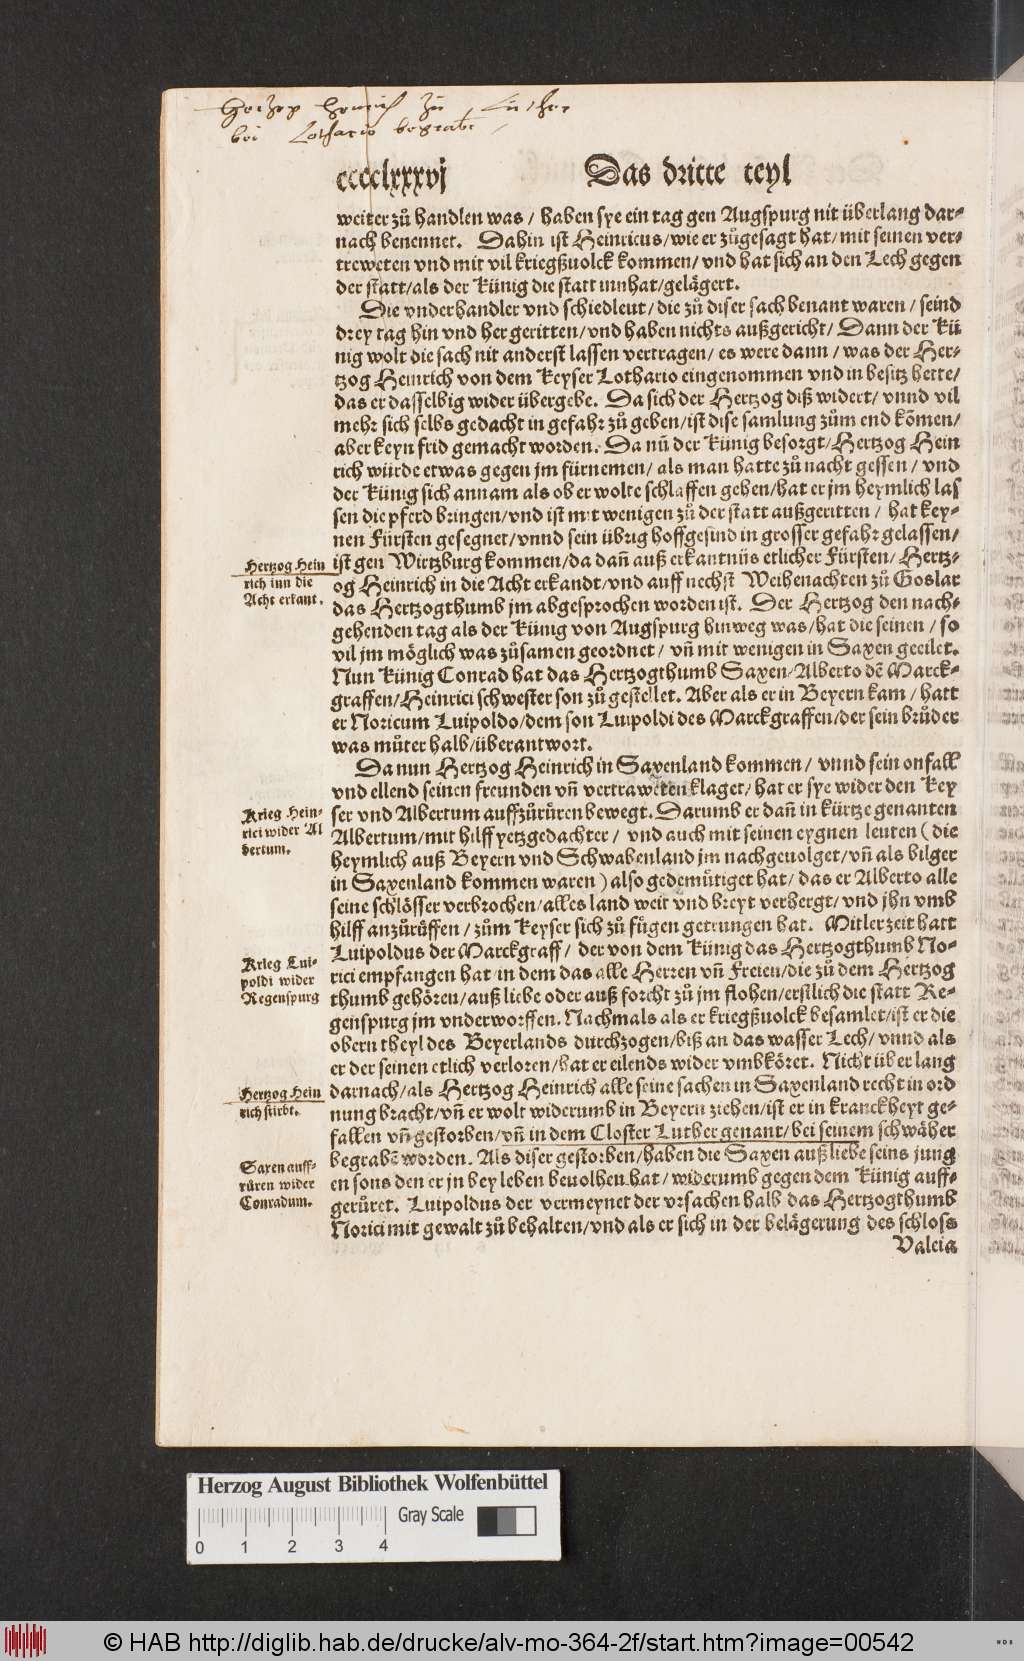 Hertzog Heinrich zu Luther
bei Lothario begrabē
ccccclxxxvj Das dritte teyl
weiter zů handlen was / haben sye ein tag gen Augspurg nit überlang dar-
nach benennet. Dahin ist Heinricus / wie er zůgesagt hat / mit seinen ver-
treweten vnd mit vil kriegßuolck kommen / vnd hat sich an den Lech gegen
der statt / als der Künig die statt innhat / gelägert.
Die vnderhandler vnd schiedleut / die zů diser sach benant waren / seind
drey tag hin vnd her geritten / vnd haben nichts außgericht / Dann der Kü
nig wolt die sach nit anderst lassen vertragen / es were dann / was der Her-
tzog Heinrich von dem Keyser Lothario eingenommen vnd in besitz hette /
das er dasselbig wider übergebe. Da sich der Hertzog diß widert / vnnd vil
mehr sich selbs gedacht in gefahr zů geben / ist dise samlung zům end kōmen /
aber keyn frid gemacht worden. Da nū der Künig besorgt / Hertzog Hein
rich würde etwas gegen jm fürnemen / als man hatte zů nacht gessen / vnd
der Künig sich annam als ob er wolte schlaffen gehen / hat er jm heymlich las
sen die pferd bringen / vnd ist mit wenigen zů der statt außgeritten / hat key-
nen Fürsten gesegnet / vnnd sein übrig hoffgesind in grosser gefahr gelassen /
ist gen Wirtzburg kommen / da dañ auß erkantnüs etlicher Fürsten / Hertz-
og Heinrich in die Acht erkandt / vnd auff nechst Weihenachten zů Goslar
das Hertzogthumb jm abgesprochen worden ist. Der Hertzog den nach-
gehenden tag als der Künig von Augspurg hinweg was / hat die seinen / so
vil jm möglich was zůsamen geordnet / vñ mit wenigen in Saxen geeilet.
Nun Künig Conrad hat das Hertzogthumb Saxen Alberto dē Marck-
graffen / Heinrici schwester son zů gestellet. Aber als er in Beyern kam / hatt
er Noricum Luipoldo / dem son Luipoldi des Marckgraffen / der sein brůder
was můter halb / überantwort.
Da nun Hertzog Heinrich in Saxenland kommen / vnnd sein onfall
vnd ellend seinen freunden vñ vertraweten klaget / hat er sye wider den Key
ser vnd Albertum auffzůrüren bewegt. Darumb er dañ in kürtze genanten
Albertum / mit hilff yetzgedachter / vnd auch mit seinen eygnen leuten ( die
heymlich auß Beyern vnd Schwabenland jm nachgeuolget / vñ als bilger
in Saxenland kommen waren ) also gedemütiget hat / das er Alberto alle
seine schlösser verbrochen / alles land weit vnd breyt verhergt / vnd jhn vmb
hilff anzůrüffen / zům Keyser sich zů fügen getrungen hat. Mitlerzeit hatt
Luipoldus der Marckgraff / der von dem Künig das Hertzogthumb No-
rici empfangen hat / in dem das alle Herren vñ Freien / die zů dem Hertzog
thumb gehören / auß liebe oder auß forcht zů jm flohen / erstlich die statt Re-
genspurg jm vnderworffen. Nachmals als er kriegßuolck besamlet / ist er die
obern theyl des Beyerlands durchzogen / biß an das wasser Lech / vnnd als
er der seinen etlich verloren / hat er eilends wider vmbköret. Nicht über lang
darnach / als Hertzog Heinrich alle seine sachen in Saxenland recht in ord
nung bracht / vñ er wolt widerumb in Beyern ziehen / ist er in kranckheyt ge-
fallen vñ gestorben / vñ in dem Closter Luther genant / bei seinem schwäher
begrabē worden. Als diser gestorben / haben die Saxen auß liebe seins jung
en sons den er jn bey leben beuolhen hat / widerumb gegen dem Künig auff-
gerüret. Luipoldus der vermeynet der vrsachen halb das Hertzogthumb
Norici mit gewalt zů behalten / vnd als er sich in der belägerung des schloss
Valeia
Hertzog Hein
rich inn die
Acht erkant.
Krieg Hein-
rici wider Al
bertum.
Krieg Lui-
poldi wider
Regenspurg
Hertzog Hein
rich stirbt.
Saxen auff-
rüren wider
Conradum.
Herzog August Bibliothek Wolfenbüttel
Gray Scale
0 1 2 3 4
© HAB http://diglib.hab.de/drucke/alv-mo-364-2f/start.htm?image=00542
HAB